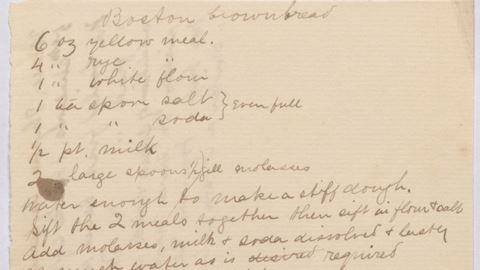 Boston brownbread
6 oz yellow meal.
4 " rye "
1 " white flour
1 tea spoon salt } Even full
1 " " soda
1/2 pt. milk
2 large spoons 1/2 gill molasses
Water enough to make a stiff dough.
Sift the 2 meals together then sift in flour & salt
Add molasses, milk & soda dissolved & lastly
as much water as is desired required